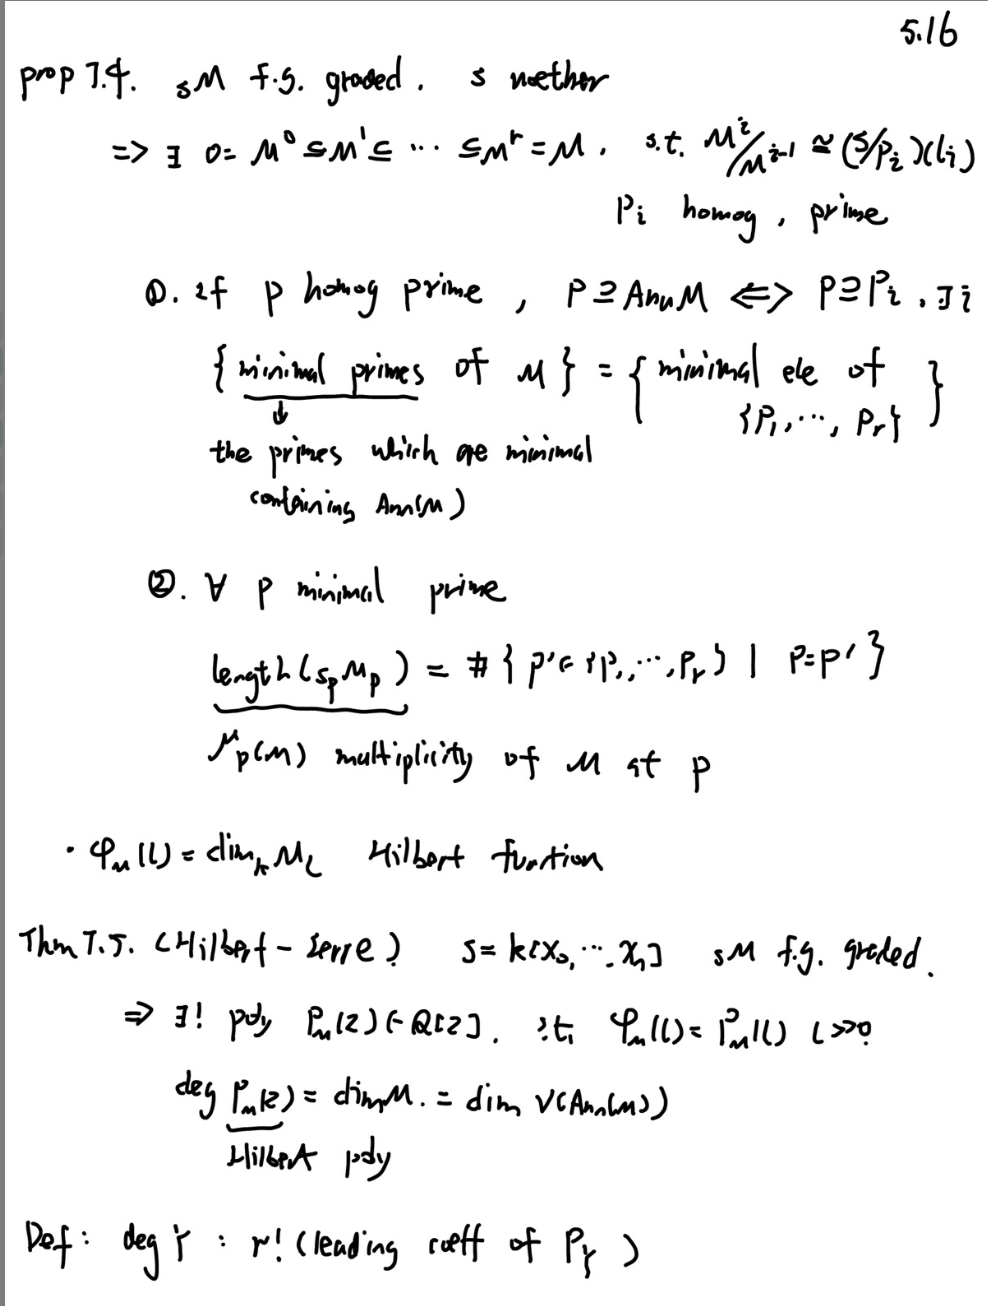 5.16
prop 7.4. sM f.g. graded. s noether
=> ∃ 0 = M⁰ ⊆ M¹ ⊆ ... ⊆ Mʳ = M. s.t. Mⁱ/Mⁱ⁻¹ ≅ (S/Pᵢ)(lᵢ)
Pᵢ homog, prime
①. if p homog prime, P ⊇ Ann M <=> P ⊇ Pᵢ, ∃ i
{ minimal primes of M } = { minimal ele of {P₁, ..., Pᵣ} }
↓
the primes which are minimal
containing Ann(M)
②. ∀ p minimal prime
length(s_p M_p) = # { p' ∈ {P₁, ..., Pᵣ} | P = P' }
μ_p(M) multiplicity of M at p
· φ_M(l) = dim_k M_l Hilbert function
Thm 7.5. (Hilbert - Serre) S = k[x₀, ... xₙ] sM f.g. graded.
=> ∃! poly P_M(z) ∈ Q[z]. s.t. φ_M(l) = P_M(l) l >> 0
deg P_M(z) = dim M. = dim V(Ann(M))
Hilbert poly
Def: deg Y : r! (leading coeff of P_Y)